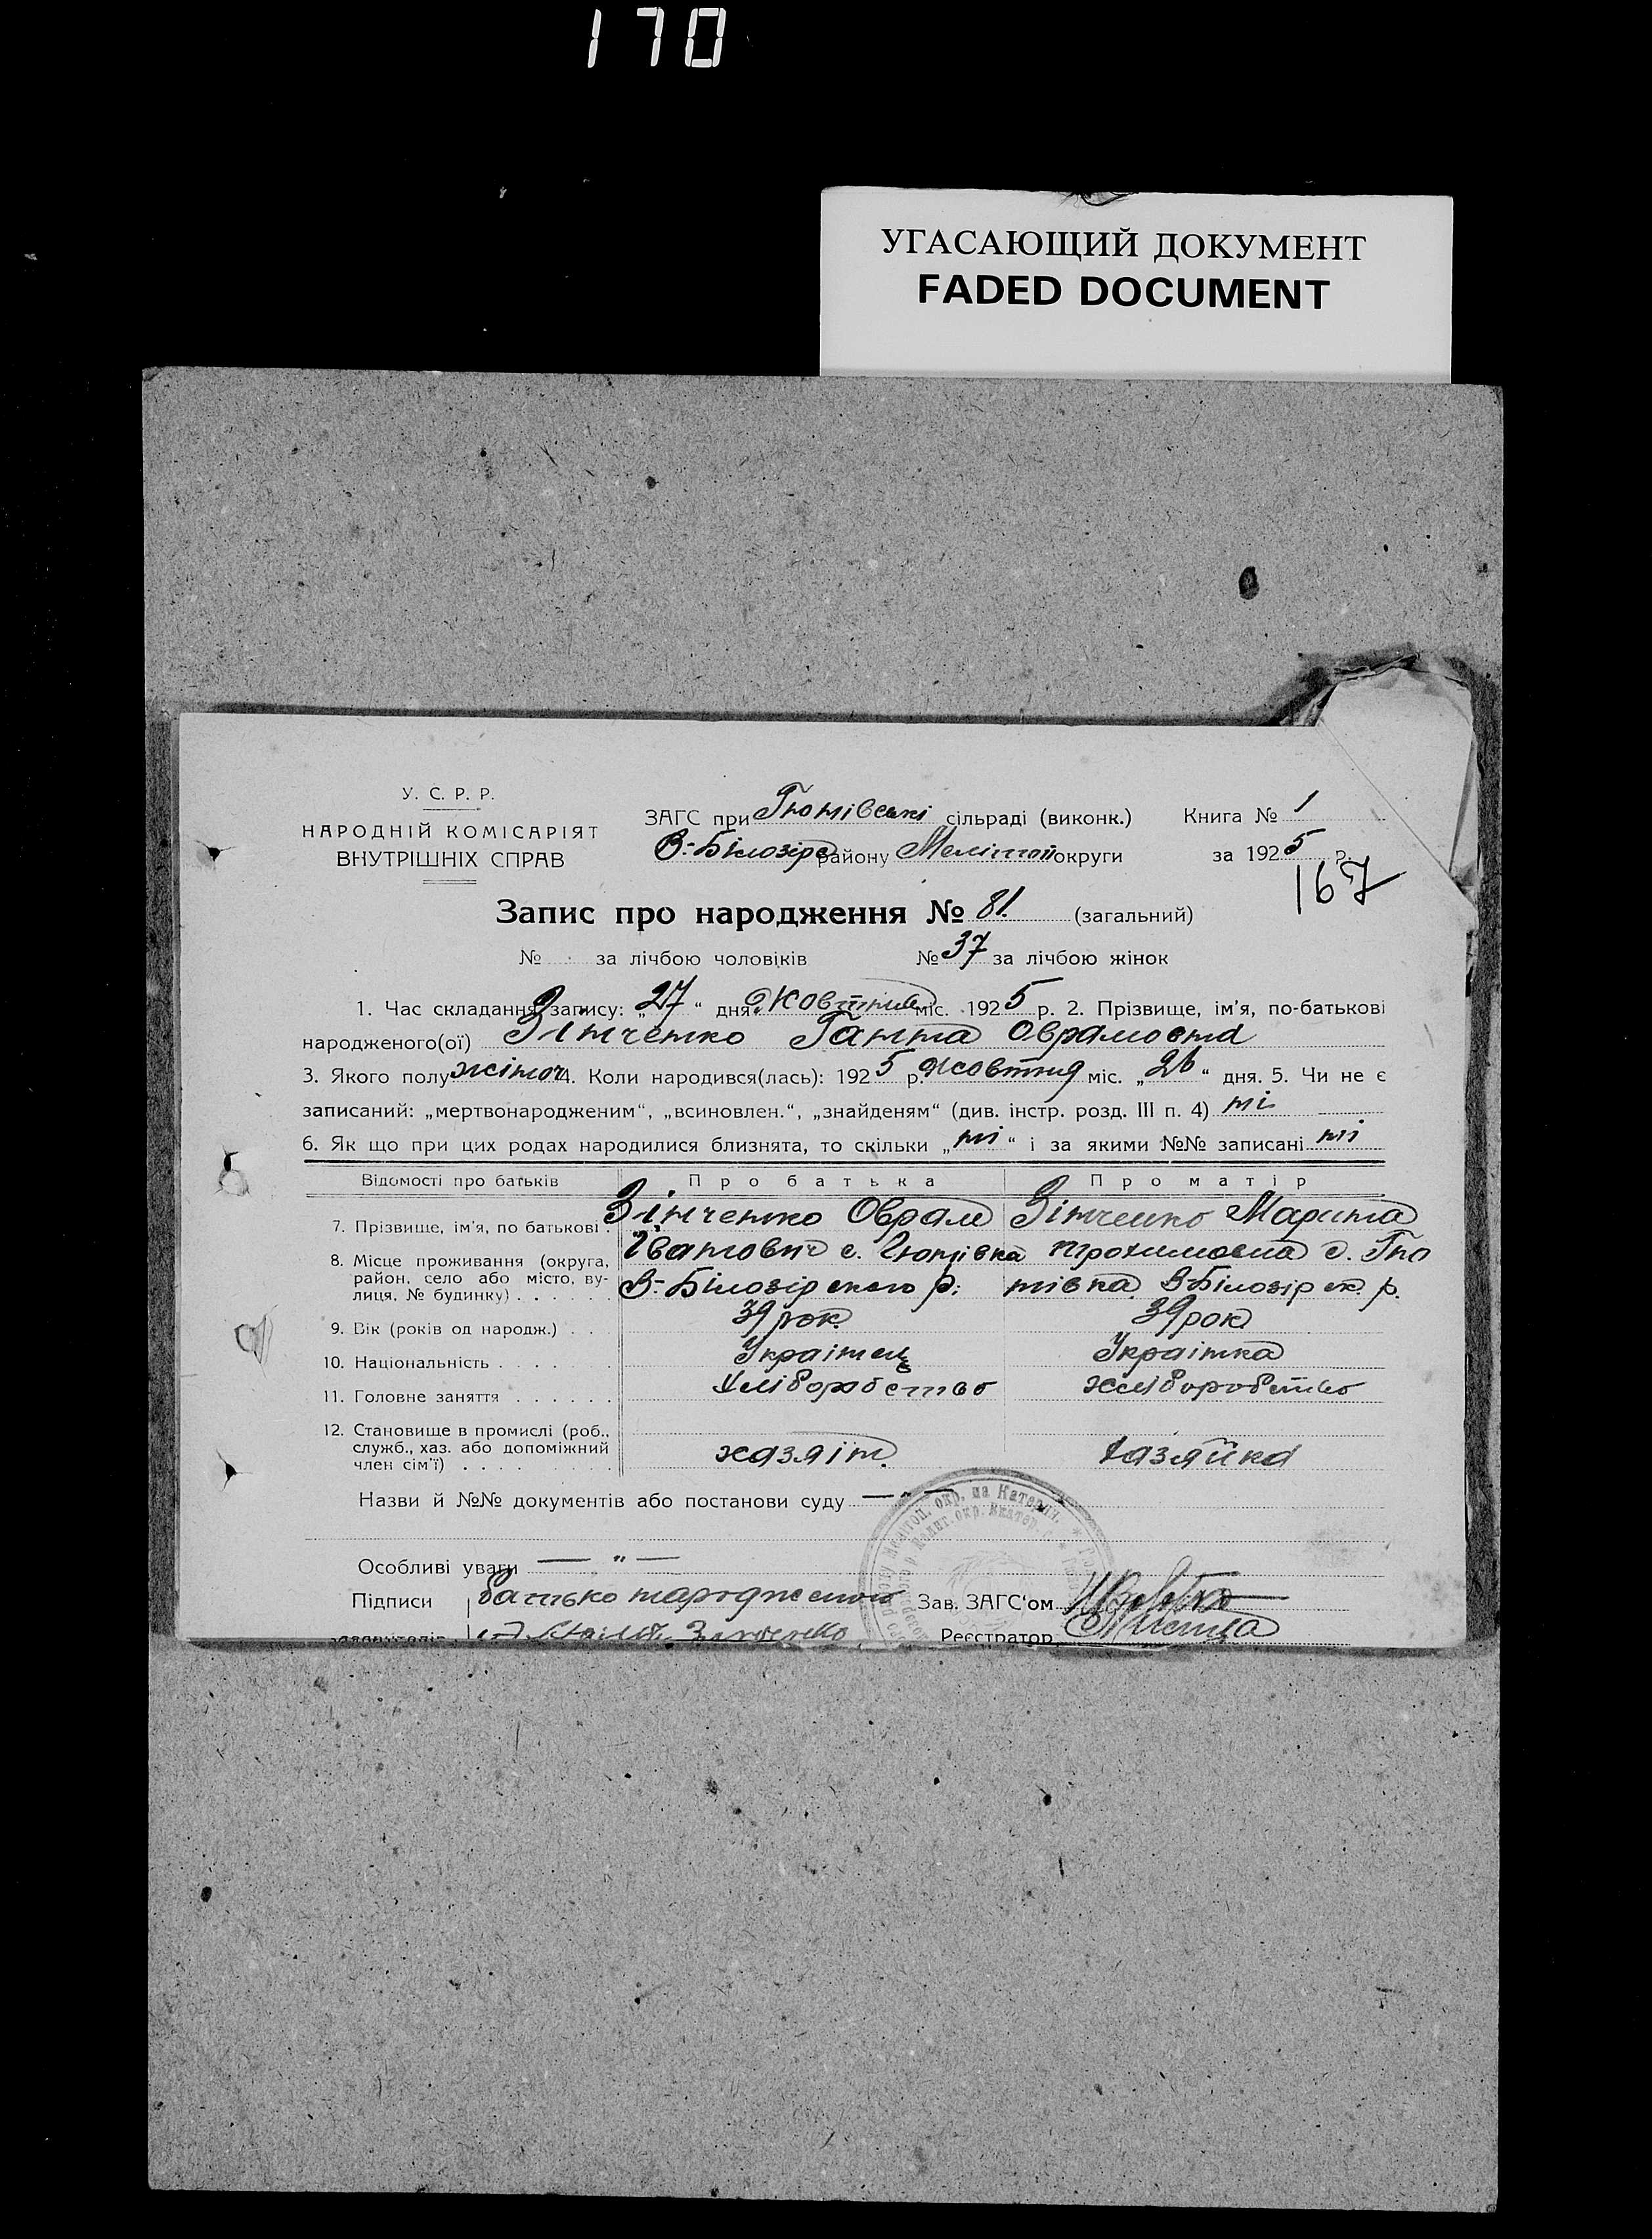 170
УГАСАЮЩИЙ ДОКУМЕНТ
FADED DOCUMENT
У. С. Р. Р.
НАРОДНІЙ КОМІСАРІЯТ
ВНУТРІШНІХ СПРАВ
ЗАГС при Гюнівські сільраді (виконк.) Книга № 1
В-Білозірс району Меліт округи за 1925 р.
167
Запис про народження № 81. (загальний)
№ за лічбою чоловіків № 37 за лічбою жінок
1. Час складання запису: „27“ дня жовтня міс. 1925 р. 2. Прізвище, ім'я, по-батькові
народженого(ої) Зінченко Ганна Оврамовна
3. Якого полу жіноч 4. Коли народився(лась): 1925 р. жовтня міс. „26“ дня. 5. Чи не є
записаний: „мертвонародженим“, „всиновлен.“, „знайденям“ (див. інстр. розд. III п. 4) ні
6. Як що при цих родах народилися близнята, то скільки „ні“ і за якими №№ записані ні
Відомості про батьків Про батька Про матір
7. Прізвище, ім'я, по батькові . Зінченко Оврам Зінченко Марина
8. Місце проживання (округа, район, село або місто, вулиця, № будинку) . . . . . . Іванович с. Гюнівка Трохимовна с. Гюнівка
В-Білозірського р. В-Білозірск. р.
9. Вік (років од народж.) . . . 39 рок. 39 рок
10. Національність . . . . . Українец Українка
11. Головне заняття . . . . . . Хліборобство хліборобство
12. Становище в промислі (роб., служб., хаз. або допоміжний член сім'ї) . . . . хазяін. хазяйка
Назви й №№ документів або постанови суду — „ —
Особливі уваги — „ —
Підписи батько народженої Зав. ЗАГС'ом
Зінченко Реєстратор